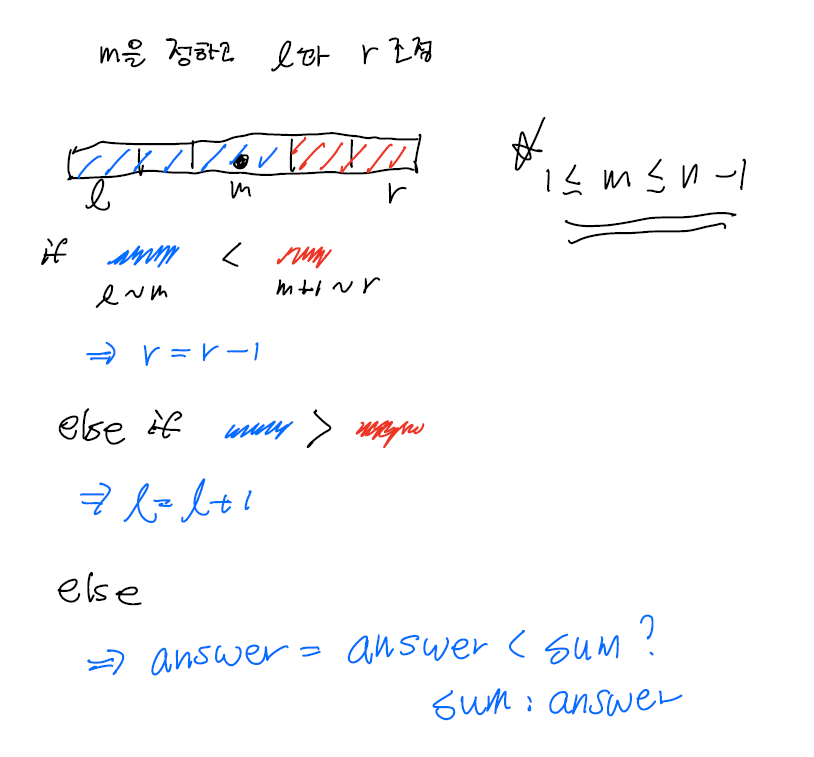 m을 정하고 l과 r 조절
l m r
☆ 1 ≤ m ≤ n - 1
if <
l ~ m m+1 ~ r
⇒ r = r - 1
else if >
⇒ l = l + 1
else
⇒ answer = answer < sum ?
sum : answer